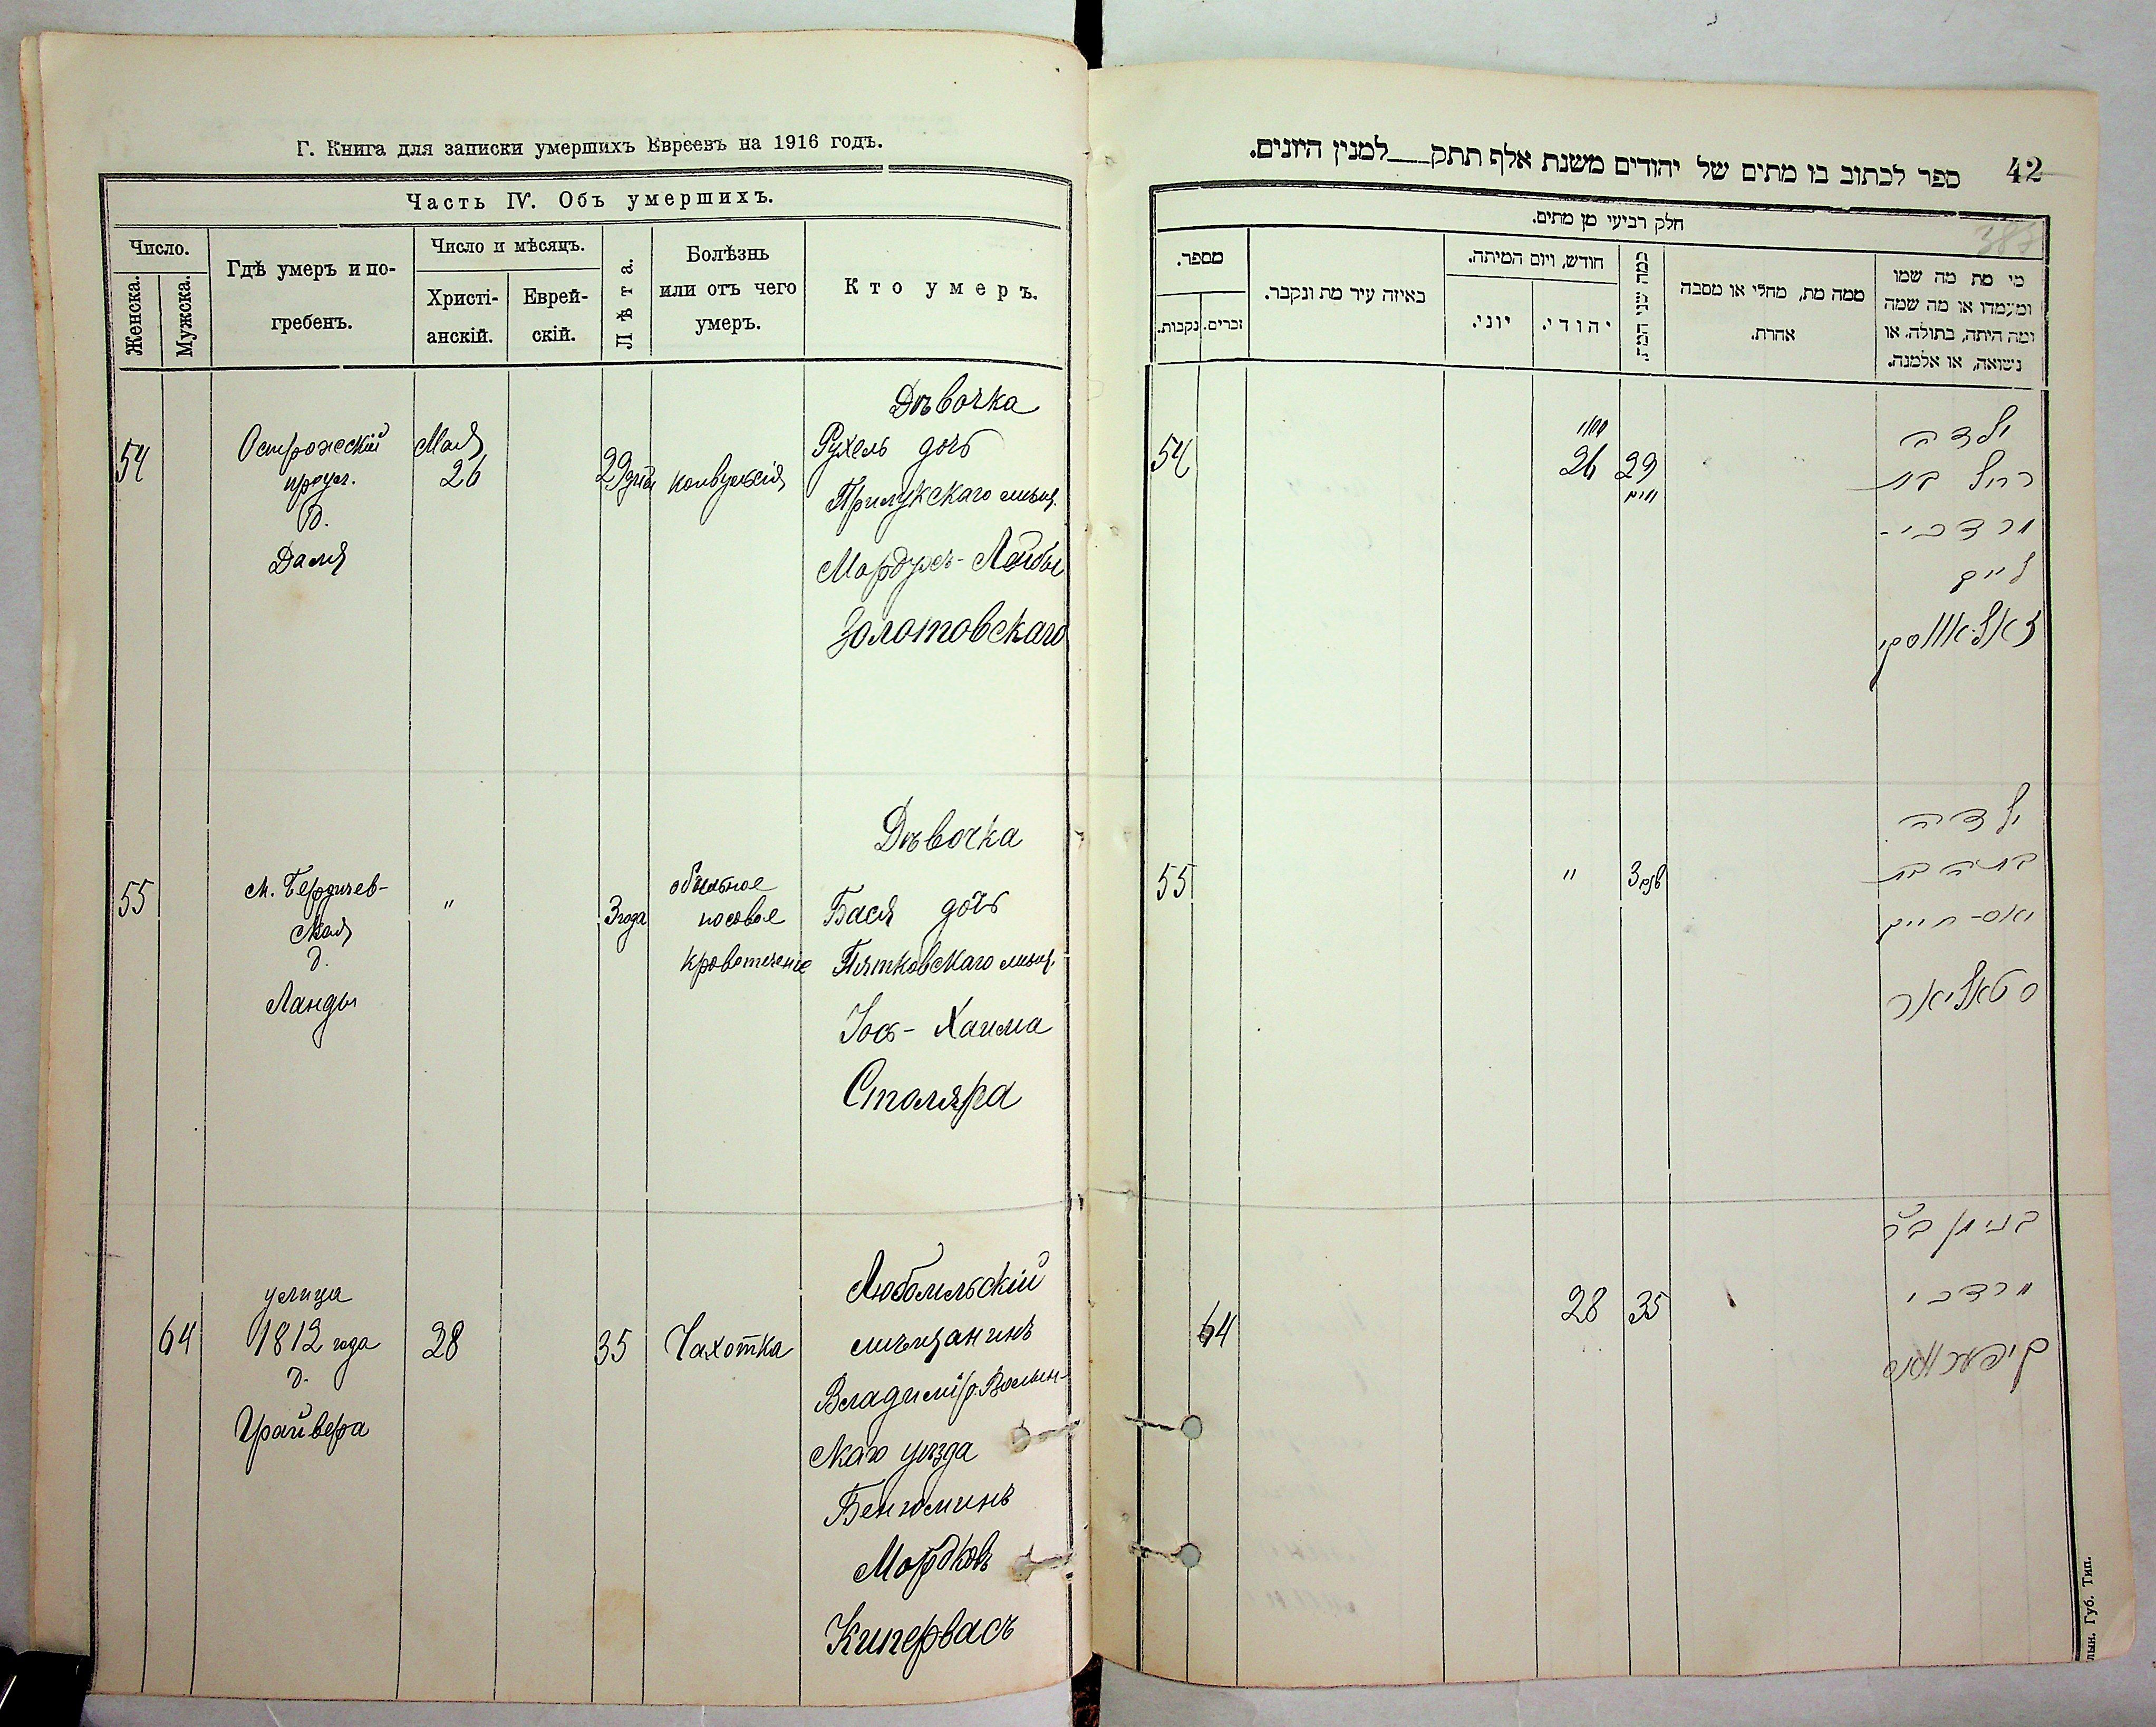 Г. Книга для записки умершихъ Евреевъ на 1916 годъ.
Часть IV. Объ умершихъ.
Число.
Женска.
Мужска.
Гдѣ умеръ и по-
гребенъ.
Число и мѣсяцъ.
Христі-
анскій.
Еврей-
скій.
Лѣта.
Болѣзнь
или отъ чего
умеръ.
Кто умеръ.
54
Острожскій
проул.
д.
Даля
Мая
26
29 дней
конвульсія
Дѣвочка
Рухель дочь
Прилукскаго мѣщ.
Мордухъ-Лейбы
Золотовскаго
55
М. Бердичев-
ская
д.
Ланды
"
3 года
обильное
носовое
кровотеченіе
Дѣвочка
Бася дочь
Пятковскаго мѣщ.
Іось-Хаима
Столяра
64
улица
1812 года
д.
Драйвера
28
35
Чахотка
Любомльскій
мѣщанинъ
Владимір. Волын-
скаго уѣзда
Беніоминъ
Мордковъ
Кипервасъ
42
ספר לכתוב בו מתים של יהודים משנת אלף תתק למנין היונים.
חלק רביעי מן מתים.
מספר.
נקבות.
זכרים.
באיזה עיר מת ונקבר.
חודש, ויום המיתה.
יוני.
יהודי.
כמה שני המת.
ממה מת, מחלי או מסבה
אחרת.
מי מת מה שמו
ומעמדו או מה שמה
ומה היתה, בתולה. או
נשואה, או אלמנה.
54
26
29
ימים
ילדה
רחל בת
מרדכי-
ליב
זאלאטווסקי
55
"
3 שנים
ילדה
בתיה בת
יאס-חיים
סטאליאר
64
28
35
בנימן ב"ר
מרדכי
קיפערוואס
лын. Губ. Тип.